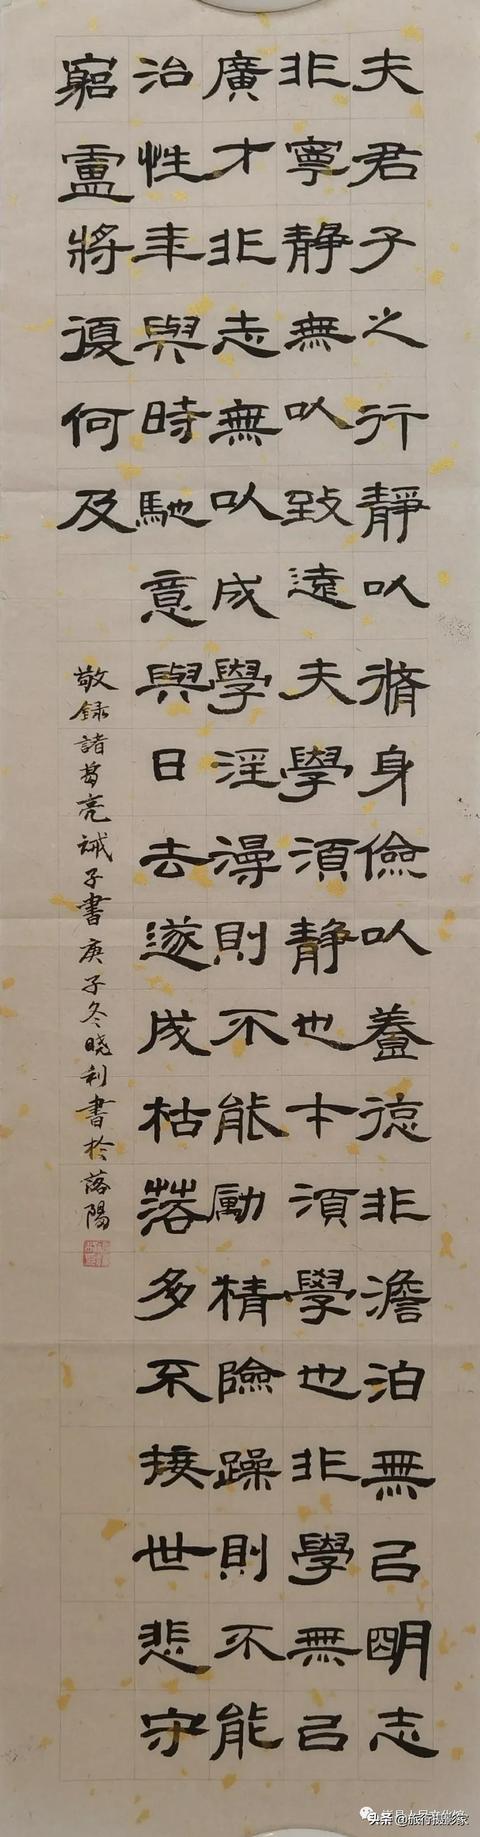 夫君子之行靜以脩身儉以養德非澹泊無㠯明志
非寧静無以致遠夫學須静也才須學也非學無㠯
廣才非志無以成學淫漫則不能勵精險躁則不能
治性年與時馳意與日去遂成枯落多不接世悲守
窮廬將復何及
敬録諸葛亮誡子書庚子冬晓利書於落陽
头条 @旅行摄影家